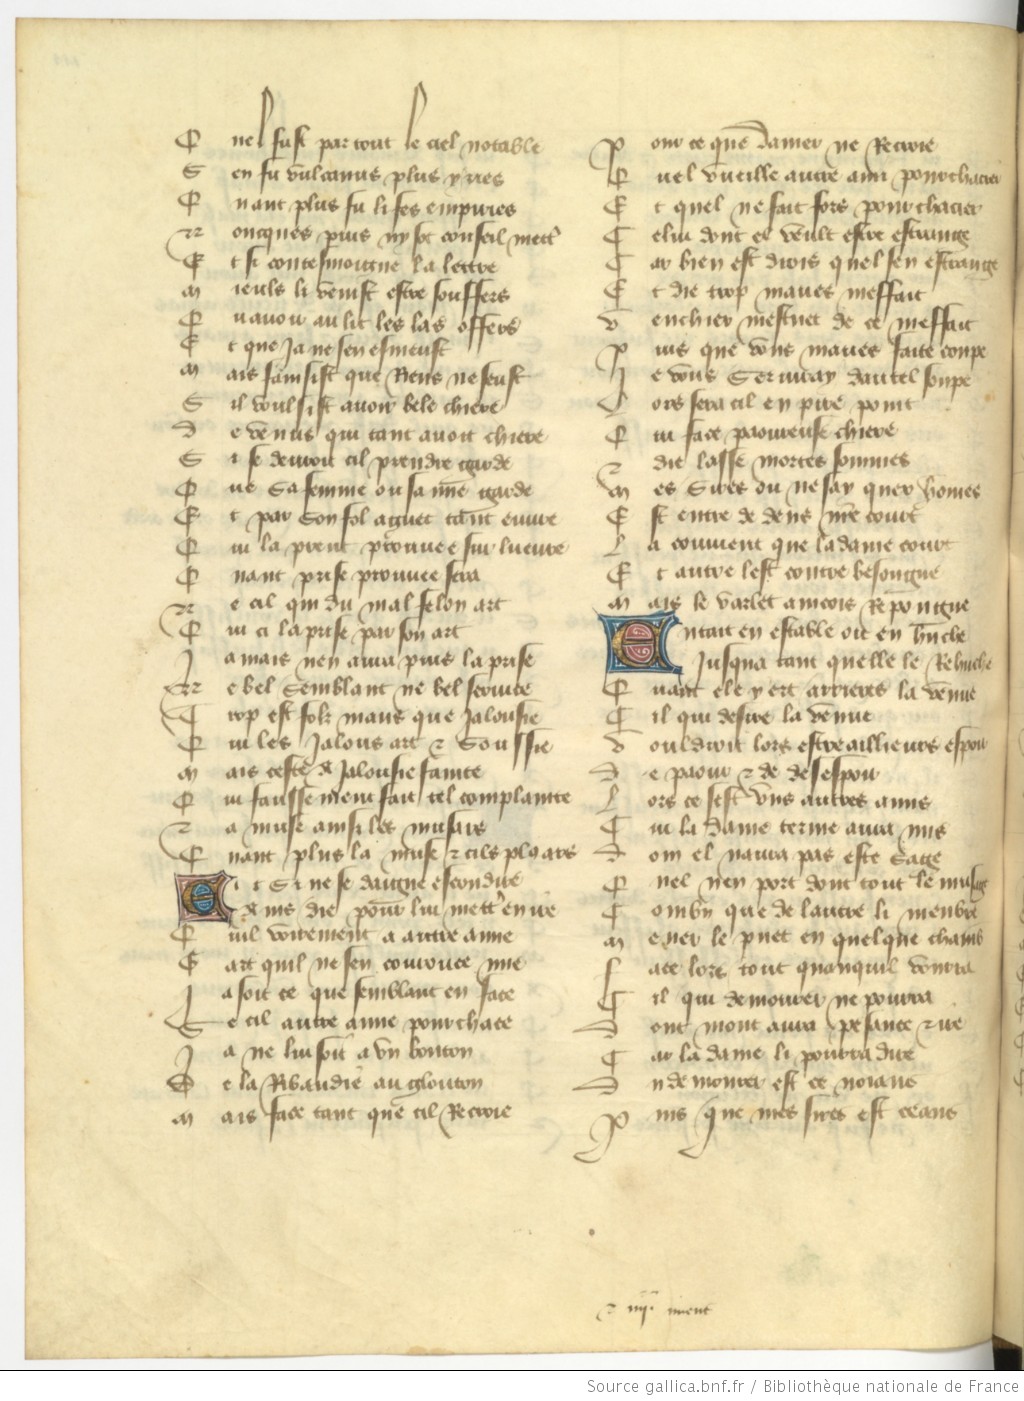 Q nel fust par tout le ciel notable
S en fu vulcanus plus yries
Q uant plus fu li fes empiries
N oncques puis ny sot conseil mettre
E t si contesmoigne la lettre
M ieuls li venist estre souffers
Q uavoir au lit les las offers
E t que Ja ne sen esmeust
M ais fainsist que Riens ne seust
S il voulsist avoir bele chiere
D e venus qui tant avoit chiere
S i se devroit cil prendre garde
Q ue Sa femme ou samie garde
E t par Son fol aguet tant euvre
Q ui la prent prouvee sur leuvre
Q uant prise prouvee sera
N e cil qui du mal felon art
Q ui ci la prise par son art
J amais nen aura puis la prise
N e bel Semblant ne bel service
T rop est fols maus que Jalousie
Q ui les Jalous art & Soussie
M ais ceste a Jalousie fainte
Q ui faussement fait tel complainte
& a muse ainsi les musars
Q uant plus la muse & cils plus ars
E t Si ne se daigne escondire
A ins die pour lui mettre en ire
Q uil voirement a autre amie
G art quil ne sen courouce mie
J a soit ce que semblant en face
S e cil autre amie pourchace
J a ne lui soit a un bouton
D e la Ribaudie au glouton
M ais face tant que cil Recroie
P our ce que damer ne Recroie
Q uel vueille autre ami pourchacier
E t quel ne fait fors pourchacier
C elui dont el veult estre estrange
C ar bien est drois quel sen estrange
E t die trop maves meffait
V enchier mestuet de ce meffait
P uis que vous maves faite coupe
J e vous Serviray dautel soupe
L ors sera cil en pire point
Q ui face paoureuse chiere
& die lasse mortes sommes
M es Sires ou ne say quex homes
E st entre de dens nostre court
L a couvient que la dame court
E t autre lest contre besongne
M ais le varlet aincois Repongne
E n tait en estable ou en huche
Jusqua tant quelle le Rehuche
Q uant ele y ert arrieres la venue
C il qui desire la venue
V ouldroit lors estre aillieurs espoir
D e paour & de desespoir
L ors ce sest uns autres amis
C ui la dame terme aura mis
D om el naura pas este Sage
Q uel nen port dont tout le musage
C ombien que de lautre li menbre
M ener le puet en quelque chambre
F ace lors tout quanquil vourra
C il qui demourer ne pourra
D ont mont aura pesance & ire
C ar la dame li pourra dire
D u demourer est ce noiant
P uis que mes sires est ceans
& iiij. ment
Source gallica.bnf.fr / Bibliothèque nationale de France